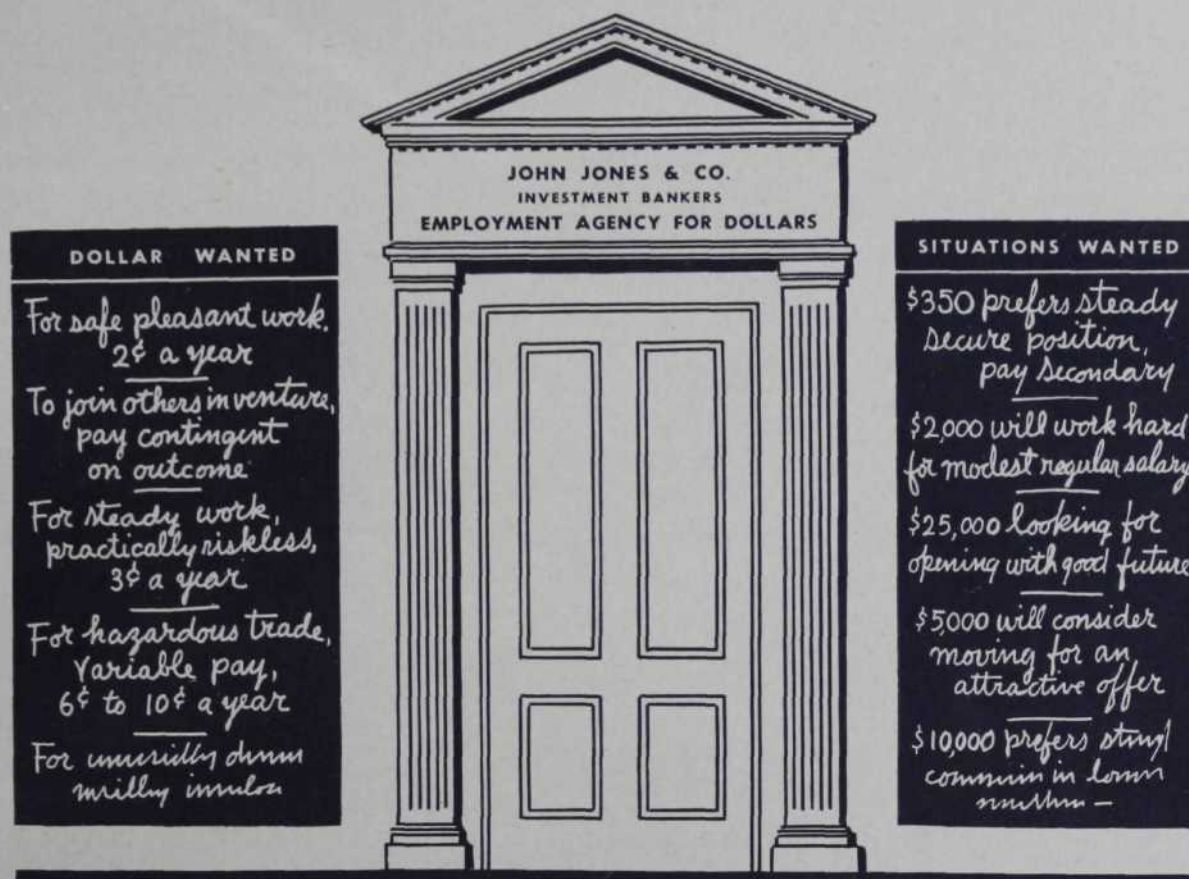 JOHN JONES & CO.
INVESTMENT BANKERS
EMPLOYMENT AGENCY FOR DOLLARS
DOLLAR WANTED
For safe pleasant work.
2¢ a year
To join others in venture,
pay contingent
on outcome
For steady work,
practically riskless,
3¢ a year
For hazardous trade,
variable pay,
6¢ to 10¢ a year
For
SITUATIONS WANTED
$350 prefers steady
secure position,
pay secondary
$2,000 will work hard
for modest regular salary
$25,000 looking for
opening with good future
$5,000 will consider
moving for an
attractive offer
$10,000 prefers
in